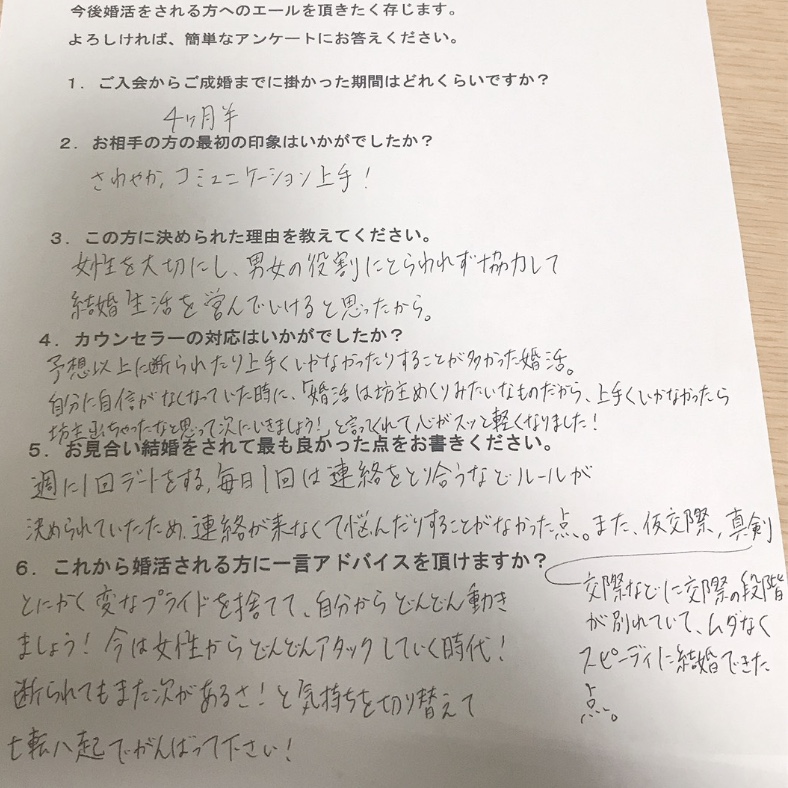 今後婚活をされる方へのエールを頂きたく存じます。
よろしければ、簡単なアンケートにお答えください。
1．ご入会からご成婚までに掛かった期間はどれくらいですか？
4ヶ月半
2．お相手の方の最初の印象はいかがでしたか？
さわやか、コミュニケーション上手！
3．この方に決められた理由を教えてください。
女性を大切にし、男女の役割にとらわれず協力して
結婚生活を営んでいけると思ったから。
4．カウンセラーの対応はいかがでしたか？
予想以上に断られたり上手くいかなかったりすることが多かった婚活。
自分に自信がなくなっていた時に、「婚活は坊主めくりみたいなものだから、上手くいかなかったら
坊主出ちゃったなと思って次にいきましょう！」と言ってくれて心がスッと軽くなりました！
5．お見合い結婚をされて最も良かった点をお書きください。
週に1回デートをする、毎日1回は連絡をとり合うなどルールが
決められていたため、連絡が来なくて悩んだりすることがなかった点、。また、仮交際、真剣
交際などに交際の段階
が別れていて、ムダなく
スピーディに結婚できた
点、。
6．これから婚活される方に一言アドバイスを頂けますか？
とにかく変なプライドを捨てて、自分からどんどん動き
ましょう！今は女性からどんどんアタックしていく時代！
断られてもまた次があるさ！と気持ちを切り替えて
七転八起でがんばって下さい！